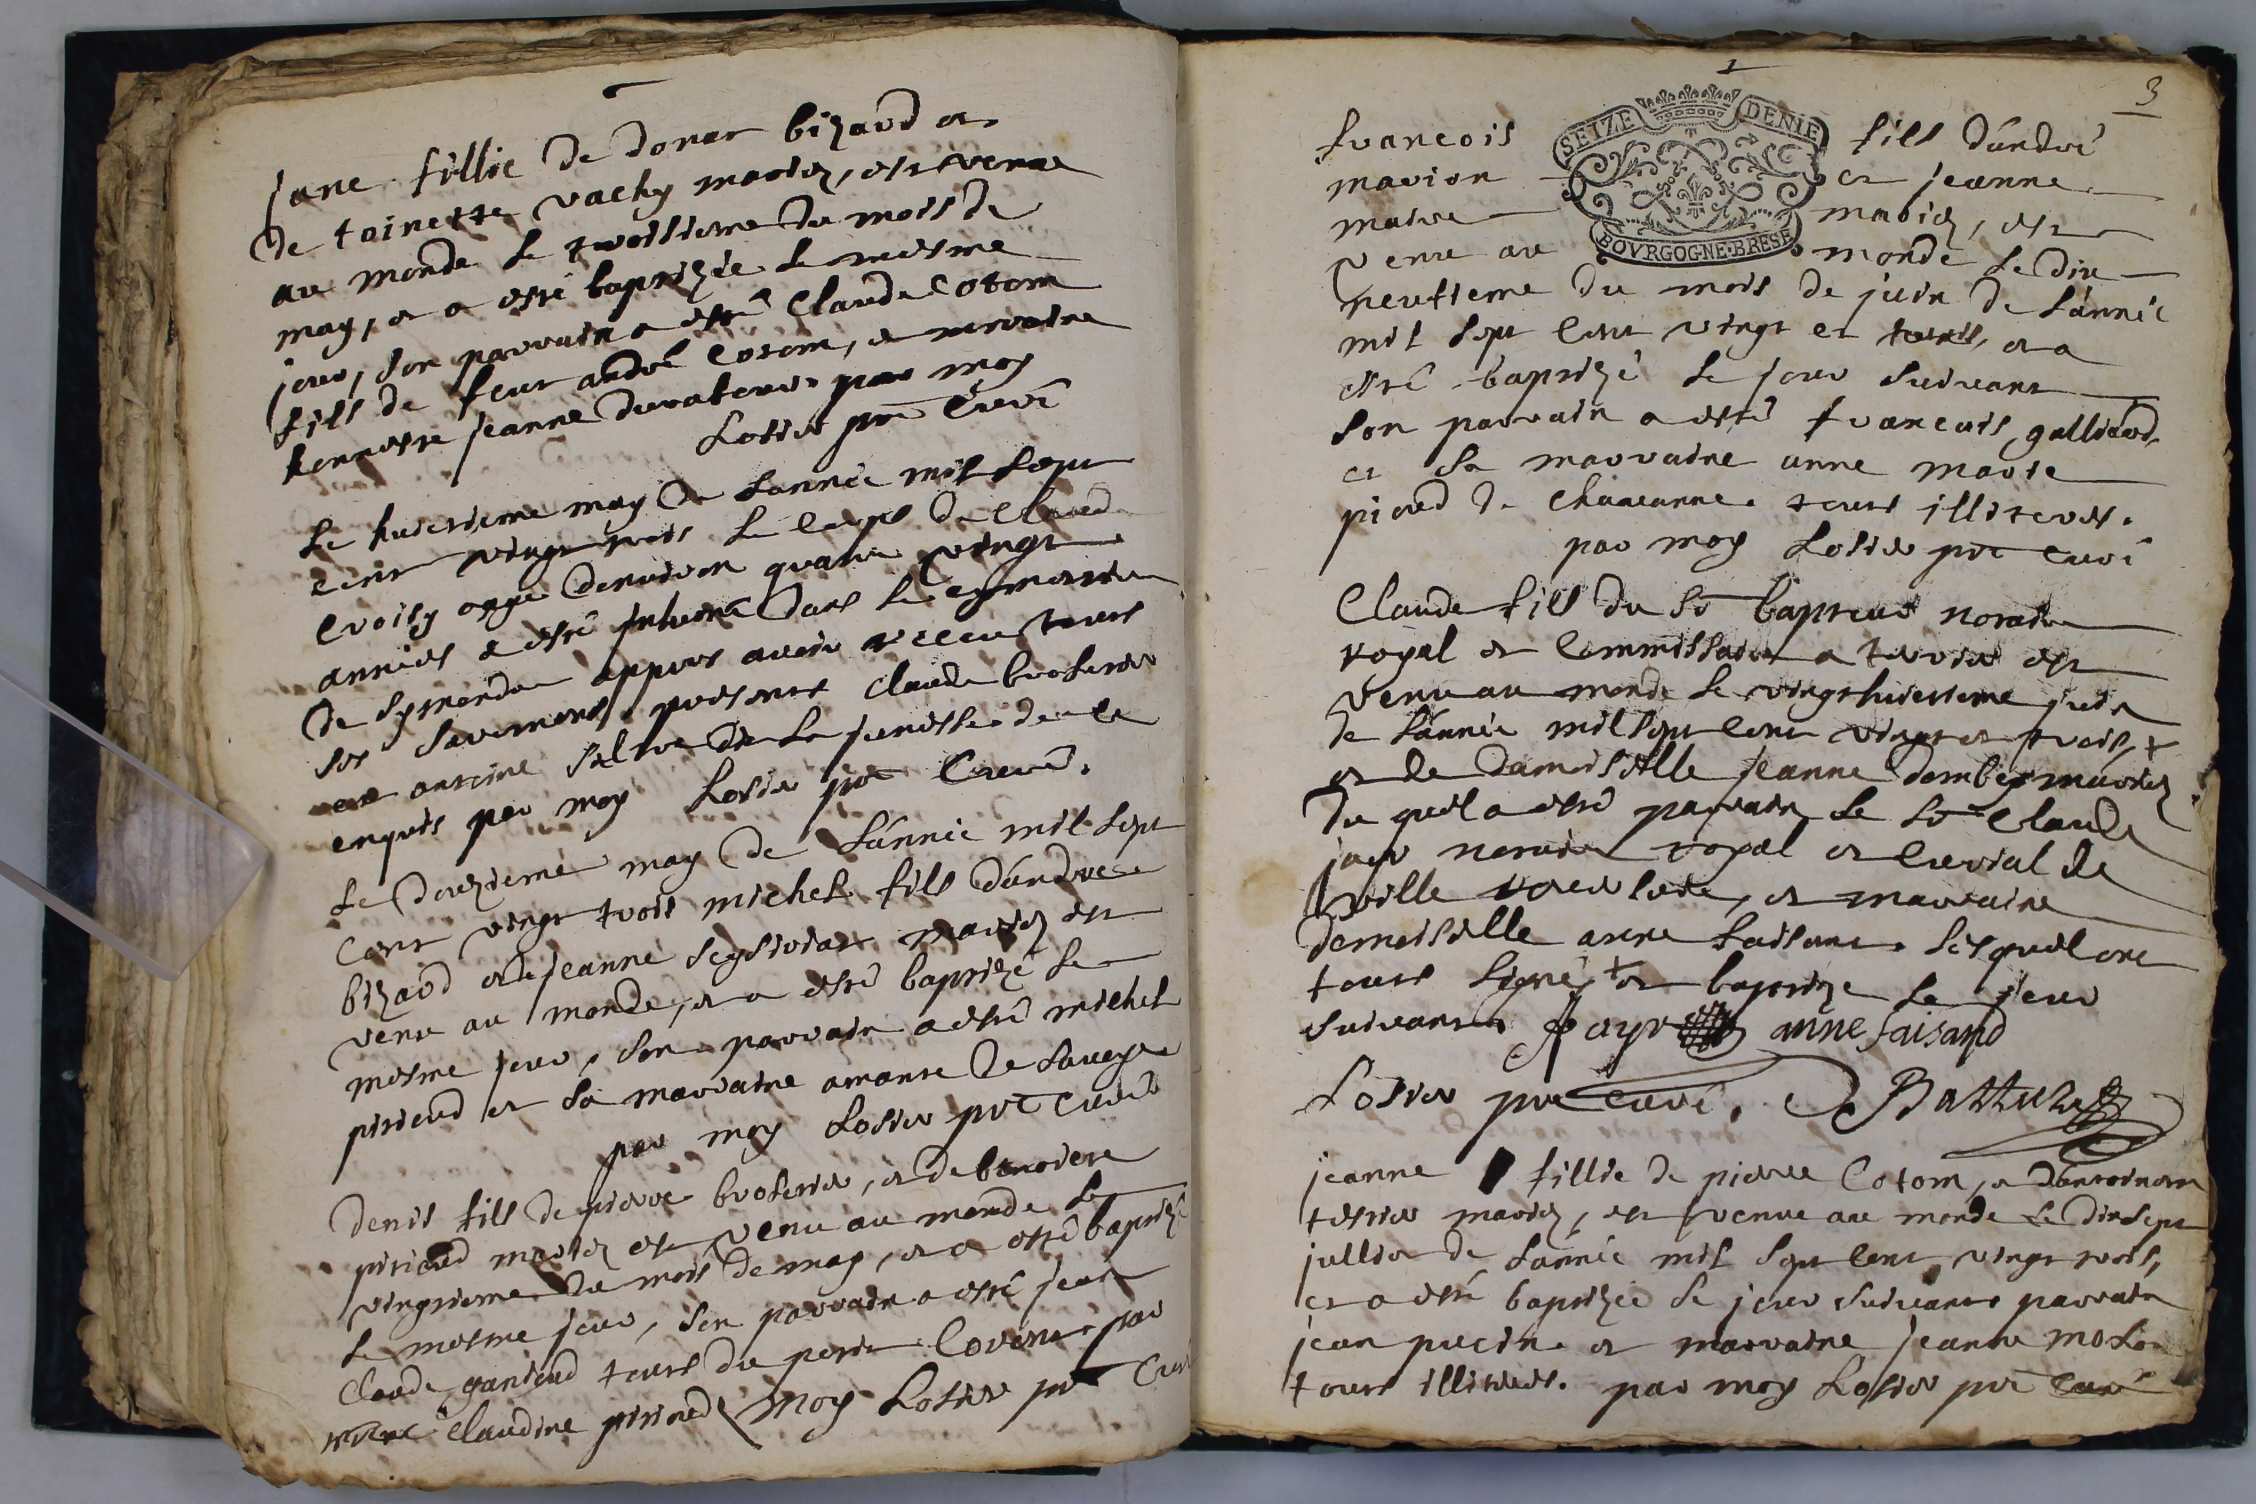 Jane fillie de donat bizard et
de toinette vachy mariez, est venue
au monde le troisieme du mois de
may, et a esté baptizée le mesme
jour, son parrain a esté Claude Cotom
fils de feut andré Cotom, et marraine
honneste jeanne par moy
Losier ptre Curé
Le huictieme may de Lannée mil sept
cent vingt trois le corps de Claude
croisy agge denviron quatre vingt
années a esté inhumé dans le cymetiere
de Symandre appres avoir receu tous
ses Sacrements presents Claude brossier
et antoine de la
enquis par moy Losier ptre Curé.
Le douzieme may de Lánnée mil sept
cent vingt trois michel fils dándre
bizard et de jeanne mariez est
venu au monde, et a esté baptizé le
mesme jour, son parrain a esté michel
piricaud et sa marraine
par moy Losier ptre Curé
Denis fils de pierre brossier, et de benoiste
piricaud mariez est venu au monde le
vingtieme du mois de may, et a esté baptizé
le mesme jour, son parrain a esté jean
Claude tous du petit Corent par
Claudine piricaud moy Losier ptre Curé
3
SEIZE DENIE
BOVRGOGNE·BRESE
francois fils dándré
marion et jeanne
maire mariez, est
venu au monde le dix
neufieme du mois de juin de Lánnée
mil sept cent vingt et trois, et a
esté baptizé le jour suivant
son parrain a esté francois galliard
et sa marraine anne marie
picard de Chavanne tous illiteres.
par moy Losier ptre Curé
Claude fils du Sr bapteur notaire
royal et Commissaire a terrier est
venu au monde le vingthuictieme juin
de Lánnée mil sept cent vingt et trois, +
et de damoiselle jeanne mariez
du quel a esté parrain le Sr Claude
notaire royal et Curial de
ville et marraine
demoiselle anne faisant lesquel ont
tous signé, + et baptize le jour
suivant. anne faisand
Losier ptre Curé.
jeanne fillie de pierre Cotom, et
tissier mariez, est venue au monde le dixsept
jullier de Lánnée mil sept cent vingt trois,
et a esté baptizée le jour suivant parrain
jean pucin et marraine jeanne
tous illiteres. par moy Losier ptre Curé